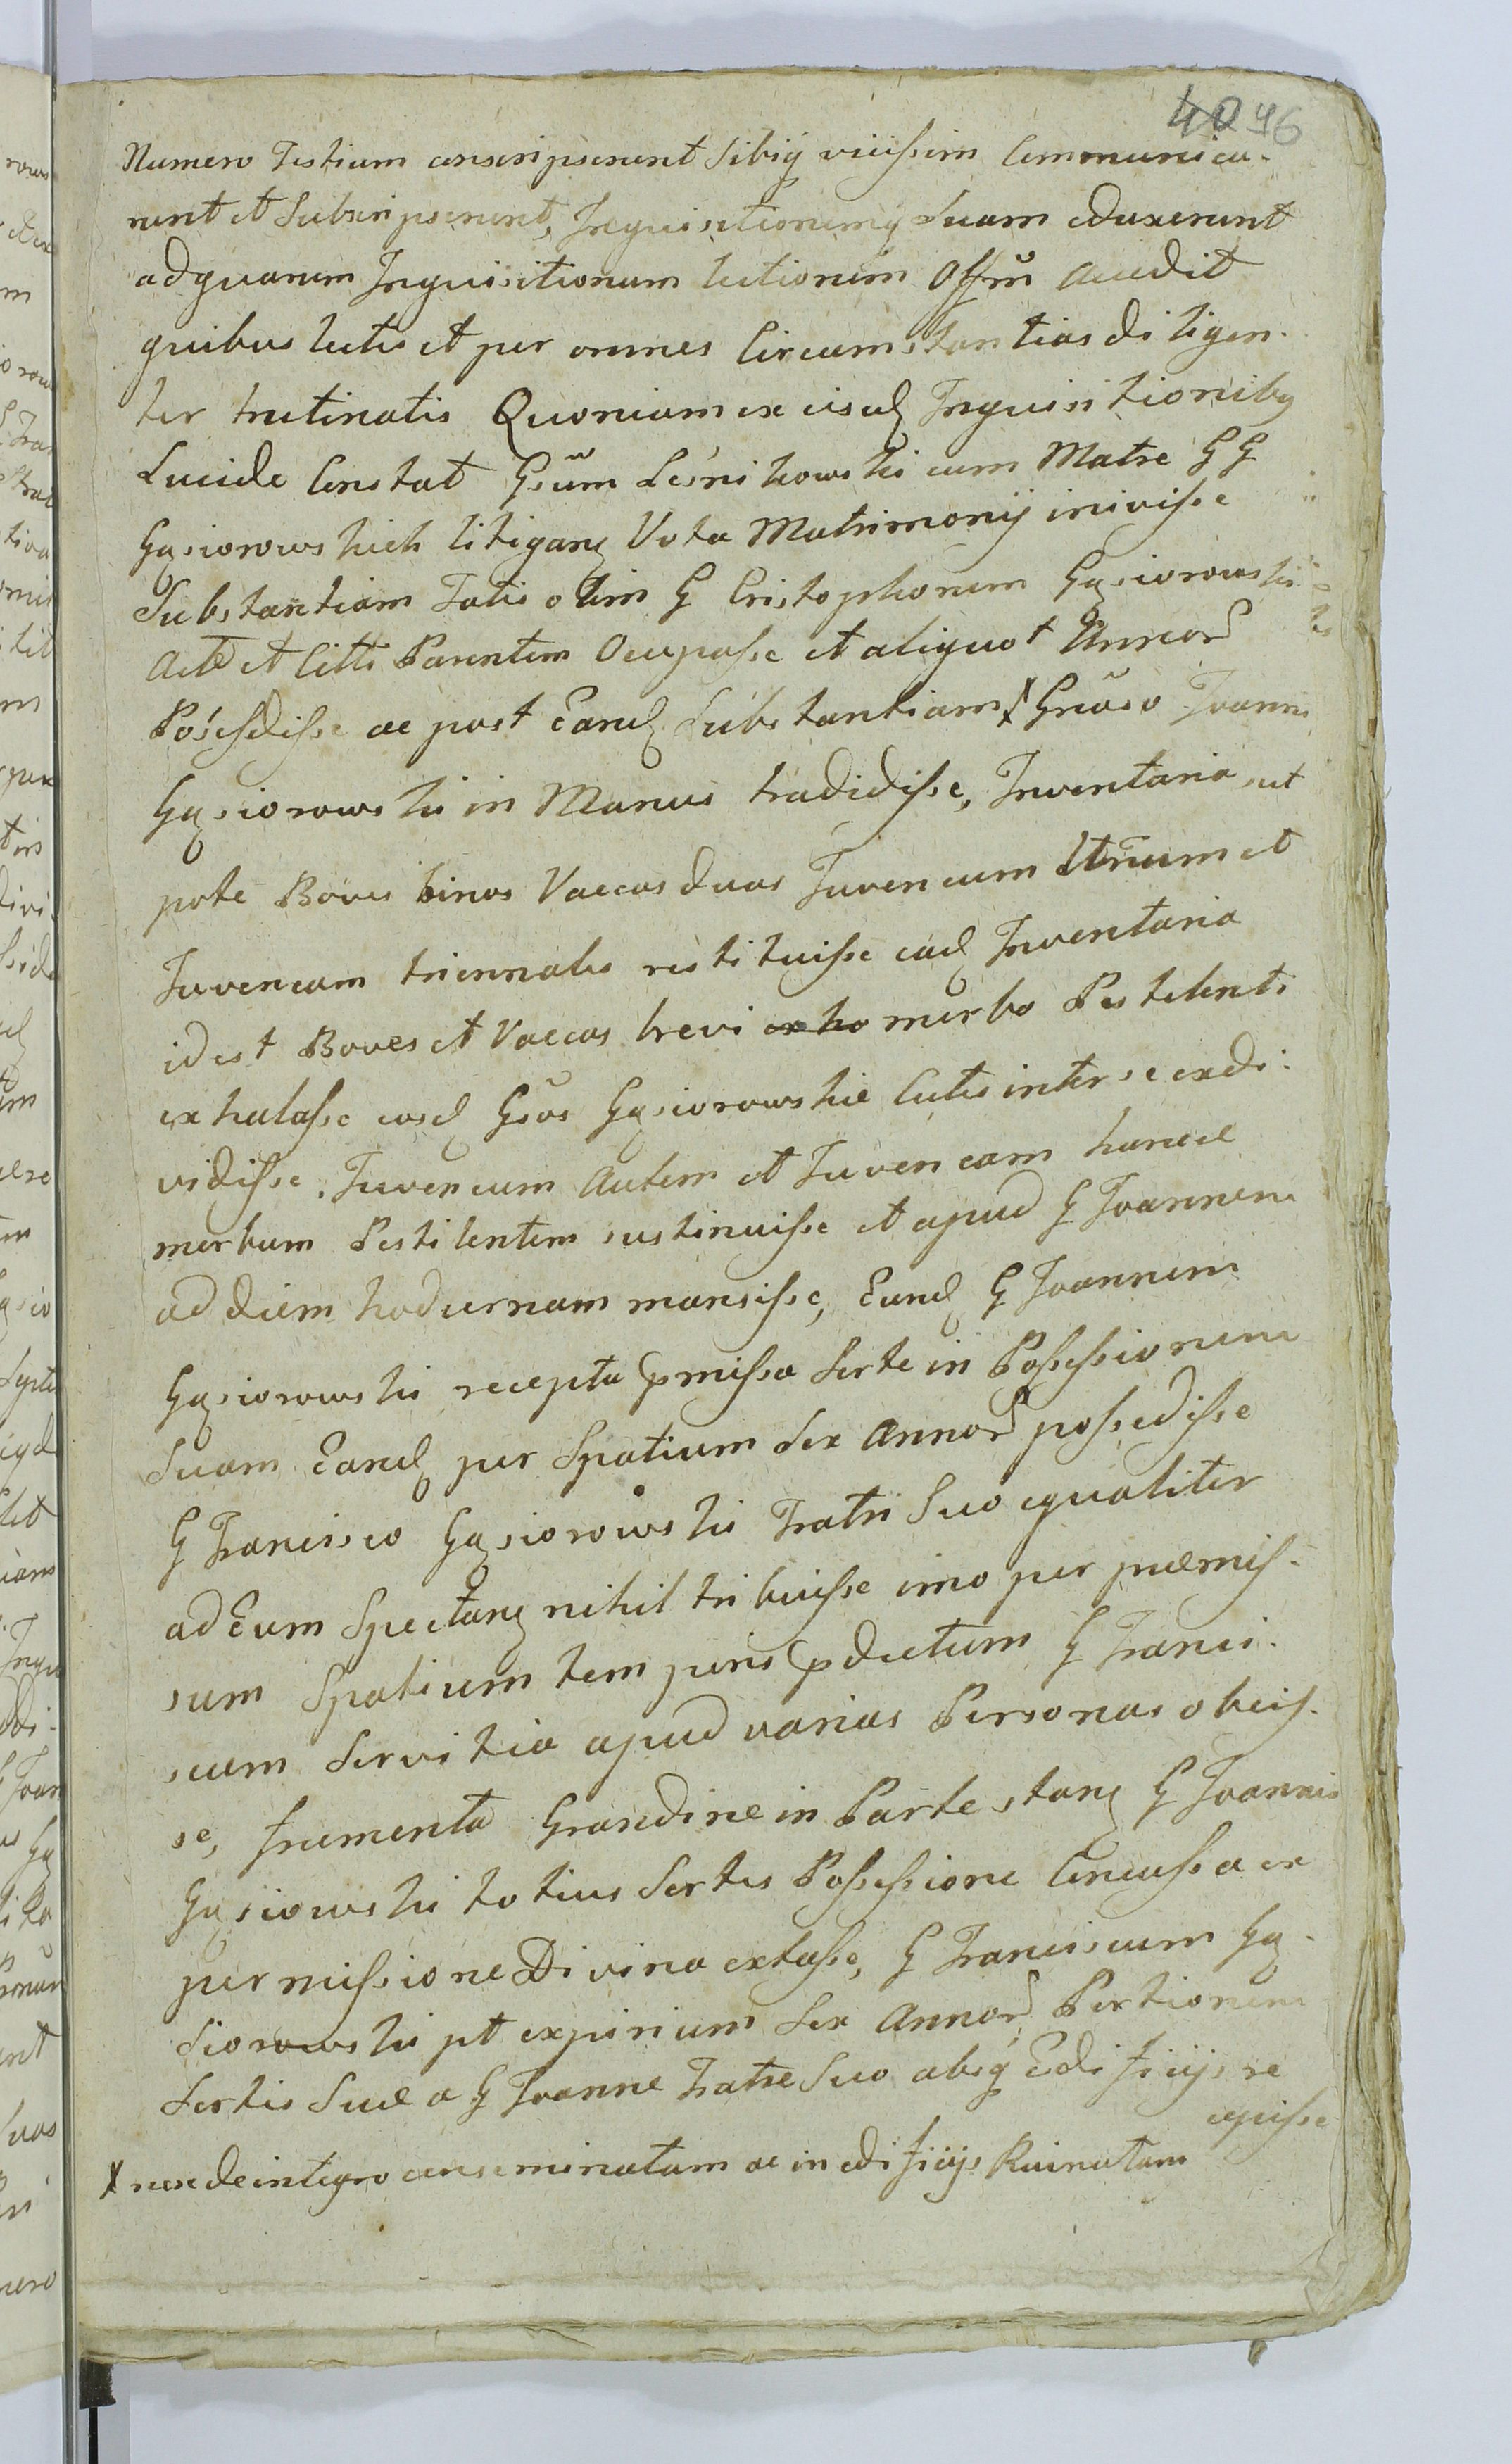 40 46
Numero Testium conscripserunt Sibiq vicissim Communica-
runt et Subscripserunt, Inquisitionemq Suam eduxerunt
ad quarum Inquisitionum lectionem Offm accedit
quibus lectis et per omnes Circumstantias diligen-
ter trutinatis Quoniam ex eisd Inquisitionibq
Lucide Constat Gsum Leśnikowski cum Matre GG
Gąsiorowskich litigang Vota Matrimonij inivisse
Substantiam Fatis olim G Cristophorum Gąsiorowski
Parentem Occupasse et aliquot Annor
Possedisse ac post Eand Substantiam X Gnoso Joanni
Gąsiorowski in Manus tradidisse, Inventaria ut
pote Boves binos Vaccas duas Juvencum Unum et
Juvencam triennales restituisse ead Inventaria
idest Boves et Vaccas brevi morbo Pestilenti
exhalasse eosd Gsos Gąsiorowskie Cutes inter se exdi-
vidisse, Juvencum Autem et Juvencam huncce
morbum Pestilentem sustinuisse et apud G Joannem
ad diem hodiernam mansisse, Eund G Joannem
Gąsiorowski recepta pmissa Sorte in Possessionem
Suam Eand per Spatium Sex Annor possedisse
G Francisco Gąsiorowski Fratri Suo equaliter
ad Eum Spectang nihil tribuisse imo per præmis-
sum Spatium temporis pdictum G Franci-
scum Servitia apud varias Personas obeis-
se, frumenta Grandine in Parte stang G Joannis
Gąsiowski totius Sortis Possessione Concussa ex
permissione Divina extasse, G Franciscum Gą-
siorowski pt expirium Sex Annor Portionem
Sortis Suæ a G Joanne Fratre Suo absq Edificijs re
cepisse
X nec de integro conseminatam ac in edificijs Ruinatam